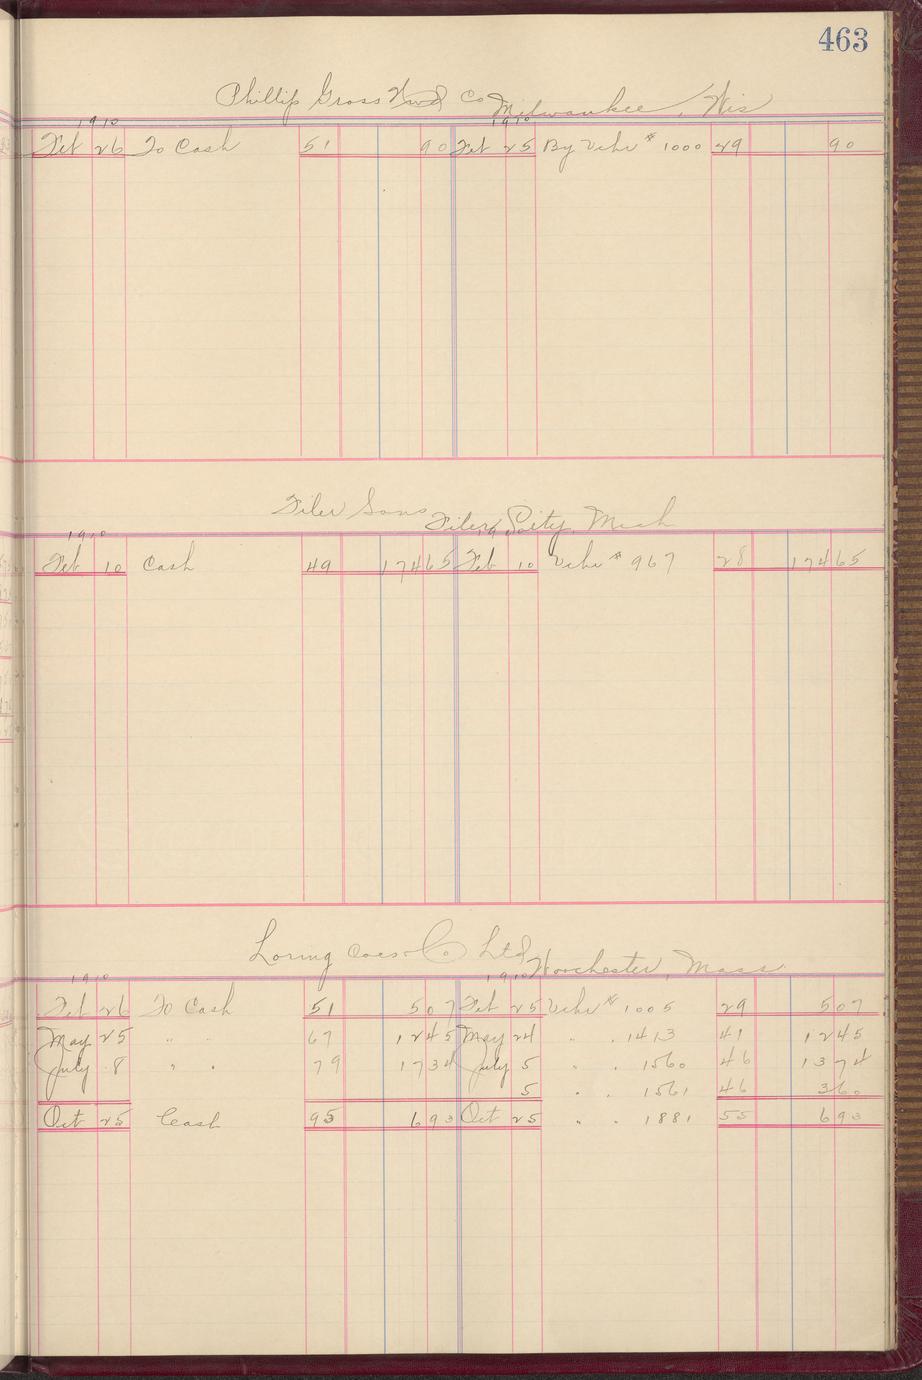 463
Phillip Gross Hwd Co Milwaukee, Wis
1910 1910
Feb 26 To Cash 51 90 Feb 25 By Vchr # 1000 29 90
Filer Sons Filer City, Mich
1910 19
Feb 10 Cash 49 174 65 Feb 10 Vchr # 967 28 174 65
Loring Coes Co Ltd Worchester, Mass
1910 1910
Feb 26 To Cash 51 5 07 Feb 25 Vchr # 1005 29 5 07
May 25 " " 67 12 45 May 24 " . 1413 41 12 45
July 8 " " 79 17 34 July 5 " . 1560 46 13 74
5 " . 1561 46 3 60
Oct 25 Cash 95 6 93 Oct 25 " . 1881 55 6 93